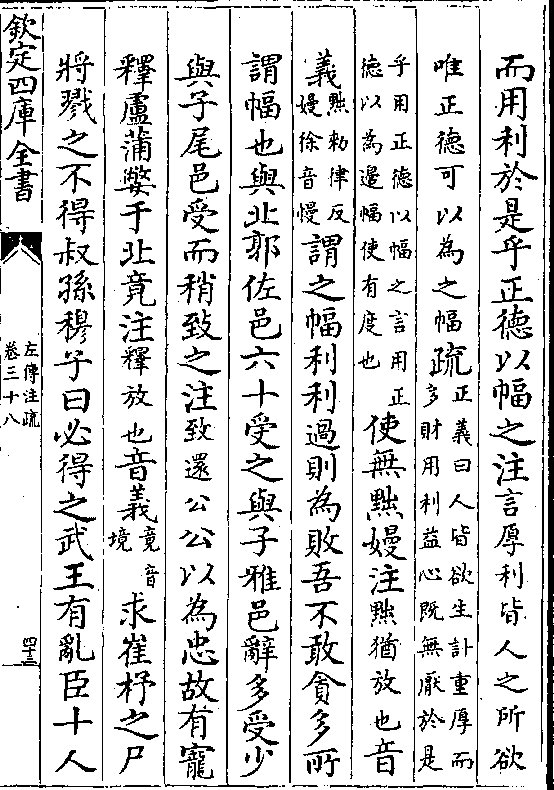 而用利於是乎正德以幅之注言厚利皆人之所欲
唯正德可以為之幅疏正義曰人皆欲生計重厚而
多財用利益心既無厭於是
乎用正德以幅之言用正
德以為邊幅使有度也
使無黜嫚注黜猶放也音
義黜勅律反
嫚徐音慢
謂之幅利利過則為敗吾不敢貪多所
謂幅也與北郭佐邑六十受之與子雅邑辭多受少
與子尾邑受而稍致之注致還公公以為忠故有寵
釋盧蒲嫳于北竟注釋放也音義竟音
境
求崔杼之尸
將戮之不得叔孫穆子曰必得之武王有亂臣十人
欽定四庫全書
左傳注疏
卷三十八
四十三